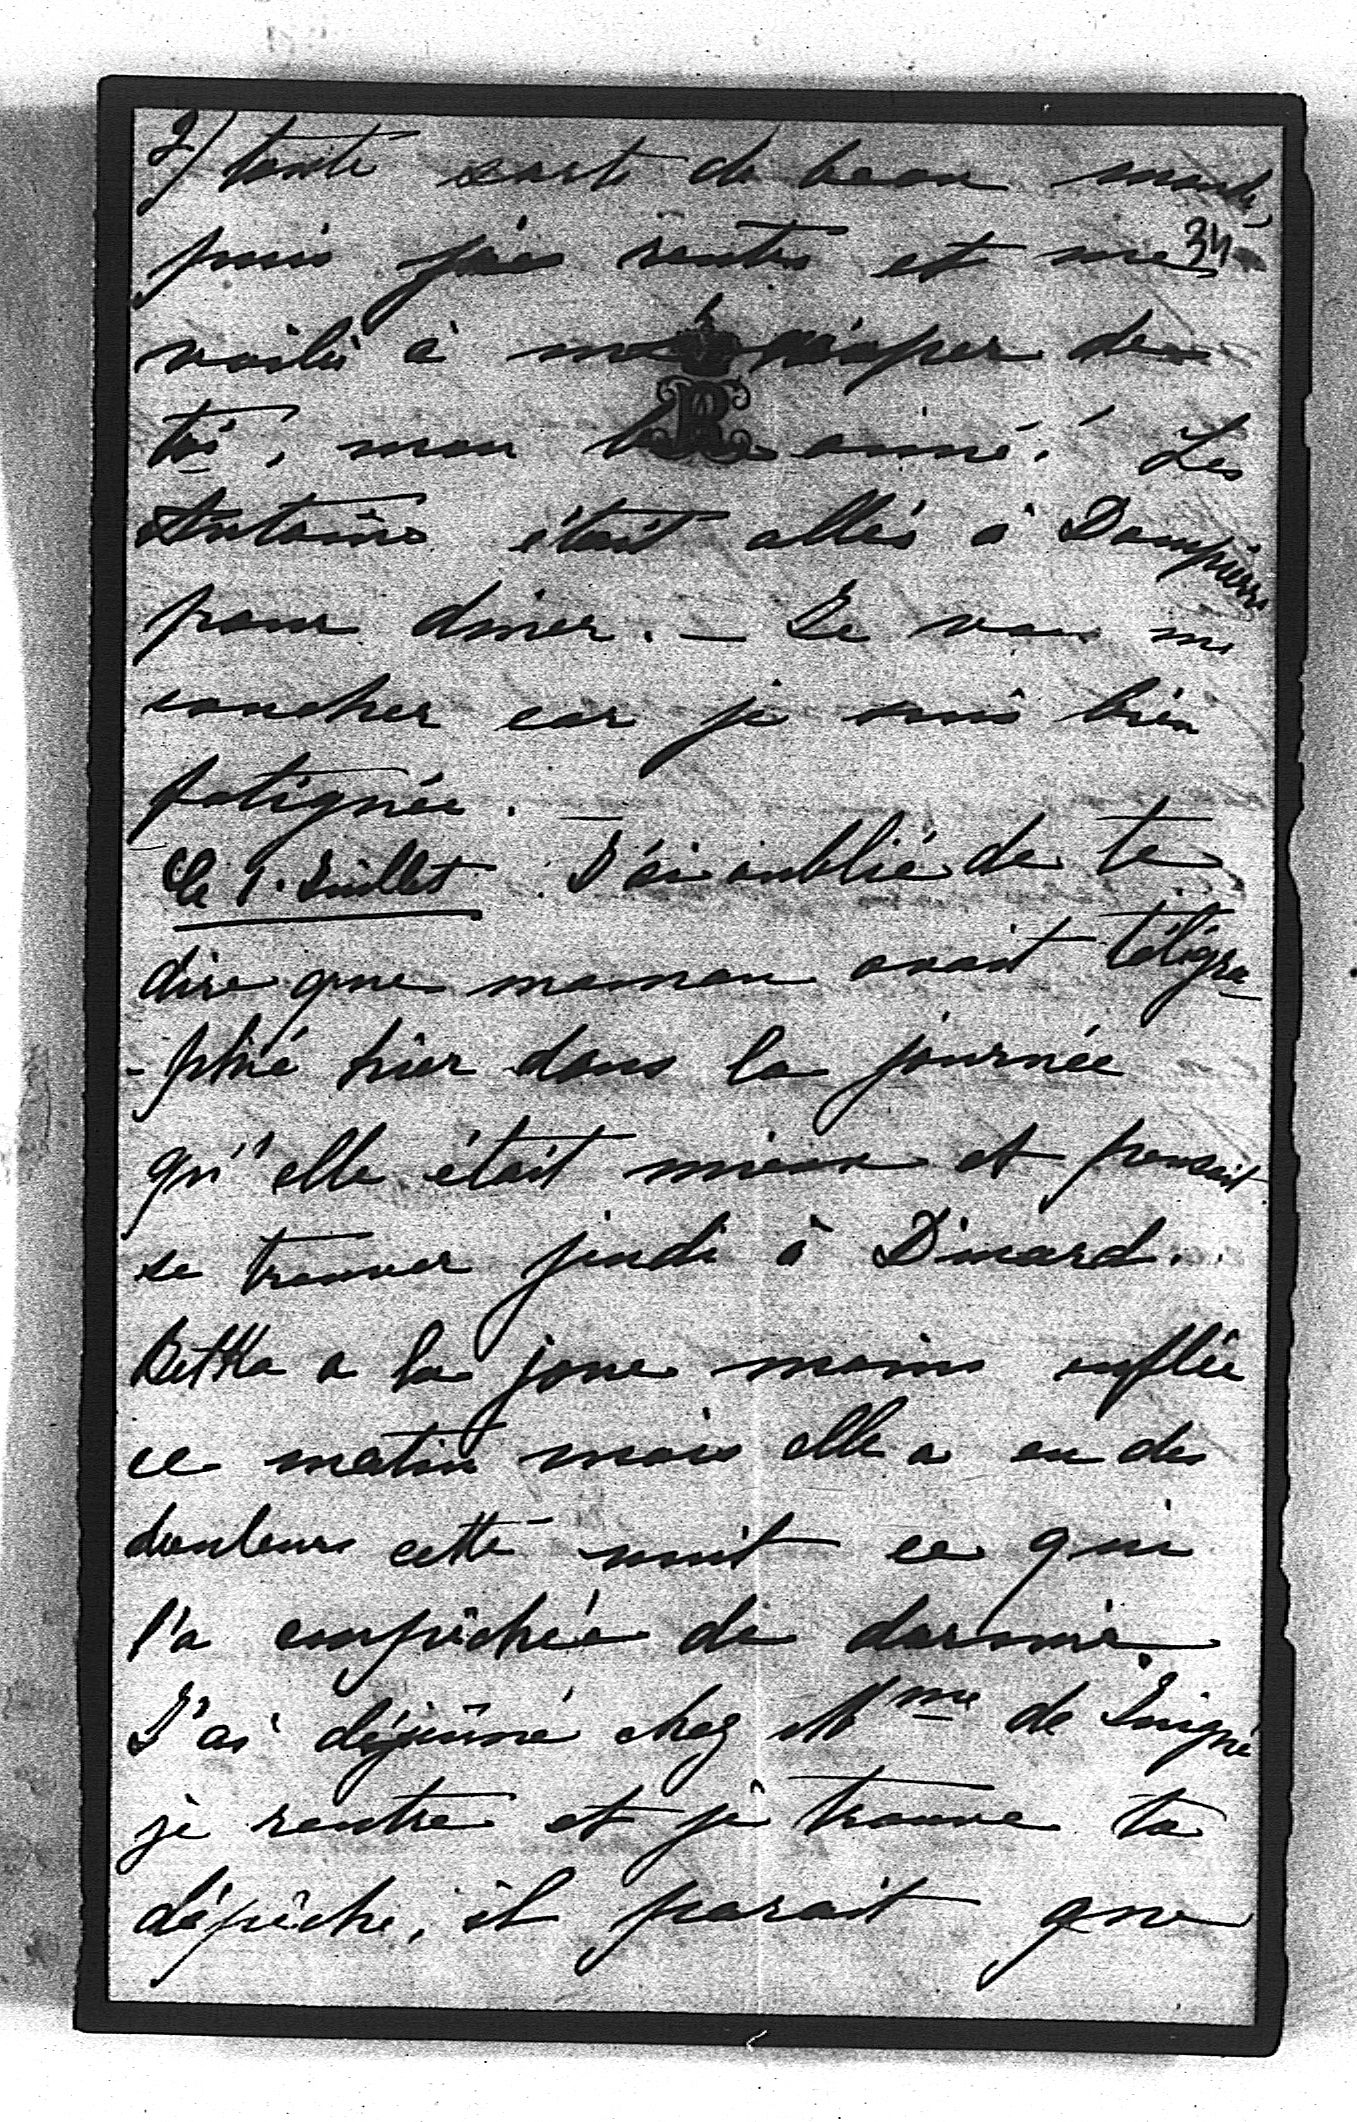 2) toute sort de beau monde,
34
puis j'ai rentré et me
voilà à m'occuper de
toi, mon bien aimé! Les
Antoine était allés à Dampierre
pour diner. — Je vais me
coucher car je suis bien
fatiguée.
Le 1. Juillet J'ai oublié de te
dire que maman avait télégra-
-phié hier dans la journée
qu'elle était mieux et pensait
se trouver jeudi à Dinard.
Betka a la joue moins enflée
ce matin mais elle a eu des
douleurs cette nuit ce qui
l'a empêchée de dormir.
J'ai déjeûné chez Mme de
je rentre et je trouve ta
dépêche, il parait que